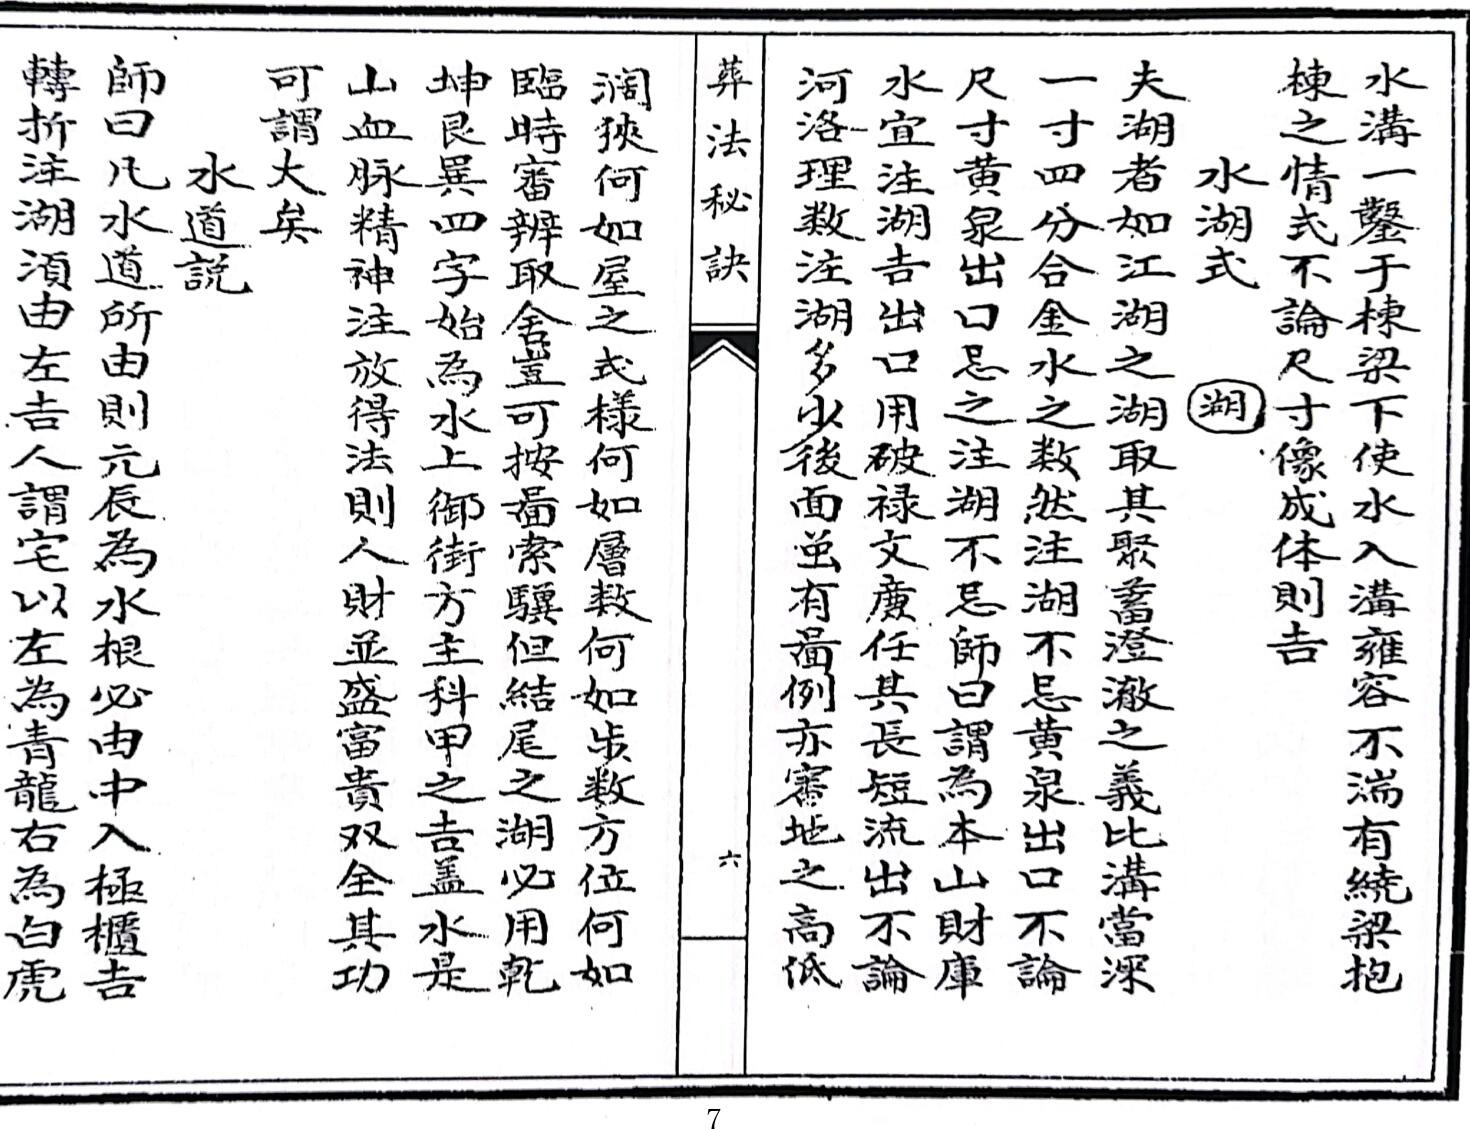 水溝一鑿于棟梁下使水入溝雍容不湍有繞梁抱
棟之情式不論尺寸像成体則吉
水湖式 湖
夫湖者如江湖之湖取其聚蓄澄澈之義比溝當深
一寸四分合金水之数然注湖不忌黄泉出口不論
尺寸黄泉出口忌之注湖不忌師曰謂為本山財庫
水宜注湖吉出口用破禄文廉任其長短流出不論
河洛理数注湖多少後面並有啚例亦審地之高低
葬法秘訣
六
濶狹何如屋之式樣何如層数何如步数方位何如
臨時審辨取舍豈可按啚索驥但結尾之湖必用乾
坤艮巽四字始為水上御街方主科甲之吉盖水是
山血脉精神注放得法則人財並盛富貴双全其功
可謂大矣
水道説
師曰凡水道所由則元辰為水根必由中入極櫃吉
轉折注湖須由左吉人謂宅以左為青龍右為白虎
7